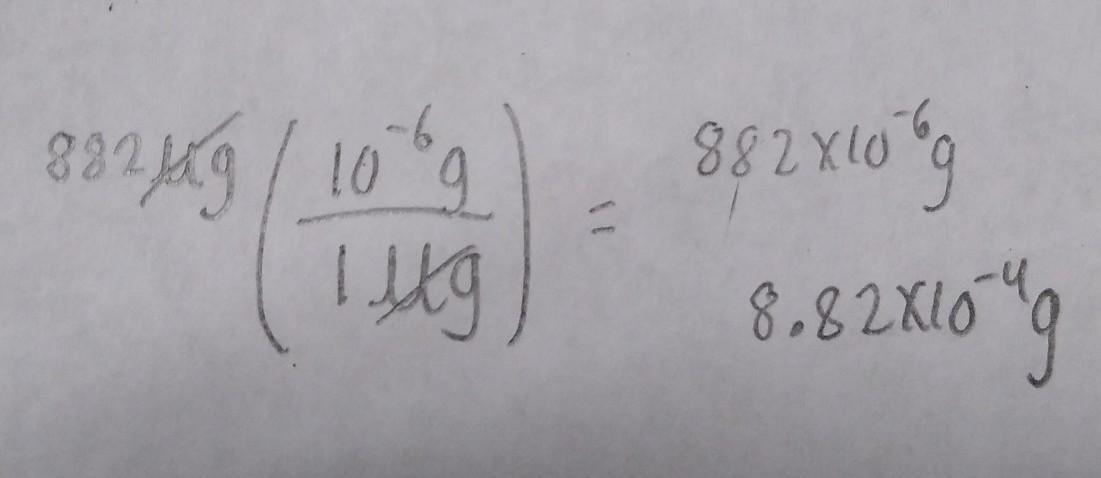 882μg ( 10⁻⁶g / 1μg ) = 882x10⁻⁶g
8.82x10⁻⁴g